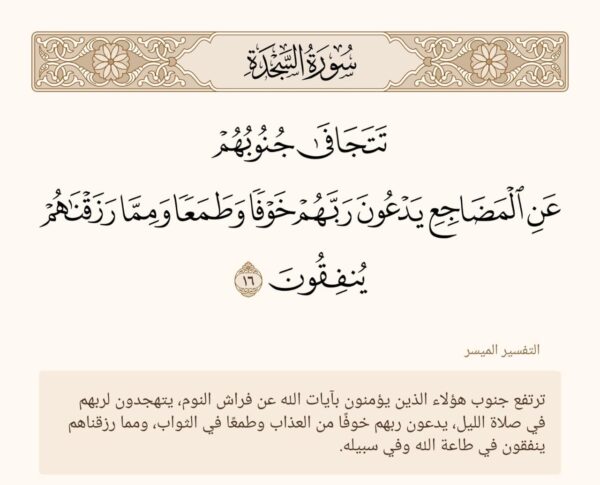 سُورَةُ السَّجْدَةِ
تَتَجَافَىٰ جُنُوبُهُمْ
عَنِ ٱلْمَضَاجِعِ يَدْعُونَ رَبَّهُمْ خَوْفًا وَطَمَعًا وَمِمَّا رَزَقْنَٰهُمْ
يُنفِقُونَ ١٦
التفسير الميسر
ترتفع جنوب هؤلاء الذين يؤمنون بآيات الله عن فراش النوم، يتهجدون لربهم
في صلاة الليل، يدعون ربهم خوفًا من العذاب وطمعًا في الثواب، ومما رزقناهم
ينفقون في طاعة الله وفي سبيله.